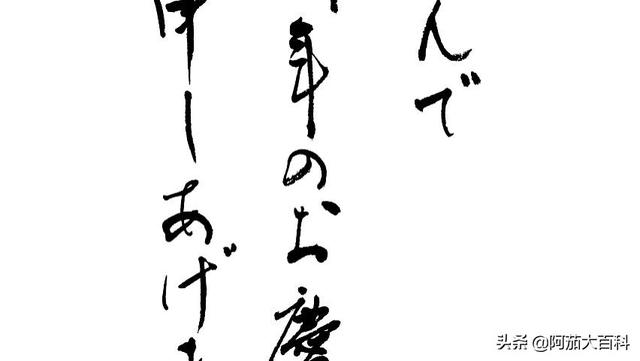 んで
年のお慶
申しあげま
头条 @阿茄大百科